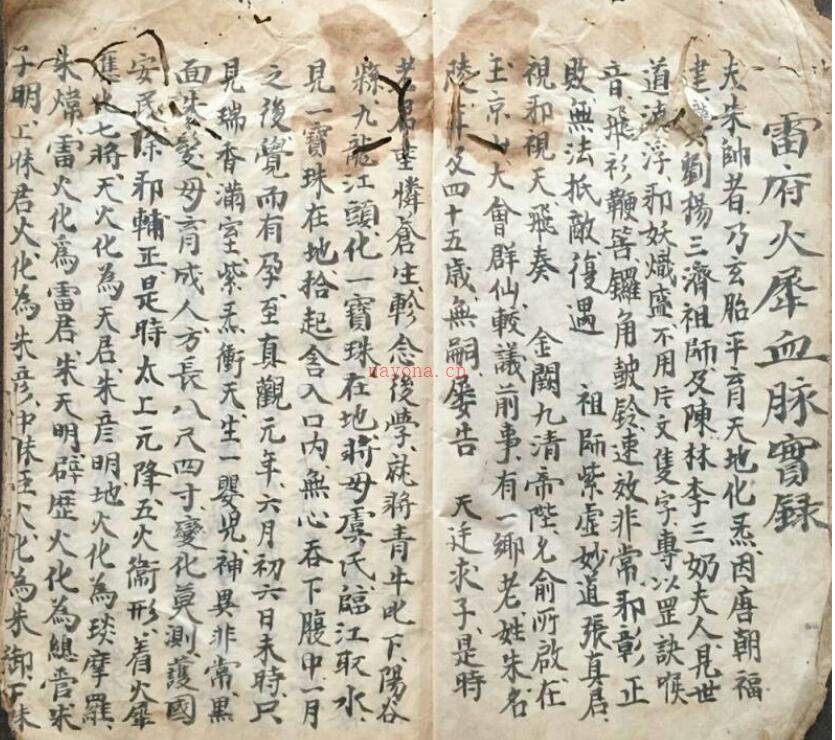 雷府火犀血脉實録
夫朱帥者乃玄胎平育天地化炁因唐朝福
建 劉楊三濟祖師及陳林李三奶夫人見世
道澆浮邪妖熾盛不用片文隻字專以罡訣喉
音飛衫鞭筶鑼角皷鈴速效非常邪彰正
敗無法抵敵復遇 祖師紫虛妙道張真君
視邪視天飛奏 金闕九清帝陛允俞所啟在
玉京 大會群仙較議前事有一鄉老姓朱名
陵年及四十五歲無嗣屢告 天廷求子是時
老君 憐蒼生軫念後學就將青牛叱下陽谷
縣九龍江頭化一寶珠在地將母虞氏臨江取水
見一寶珠在地拾起含入口內無心吞下腹中一月
之後覺而有孕至真觀元年六月初六日未時只
見瑞香滿室紫炁衝天生一嬰児神異非常黑
面 髮母育成人方長八尺四寸變化莫測護國
安民除邪輔正是時太上元降五火衛形着火犀
 化七將天火化為天君朱彥明地火化為琰摩羅
朱 雷火化為雷君朱天明霹歷火化為總管朱
子明上昧君火化為朱彥 中昧臣火化為朱御下昧
nayona.cn